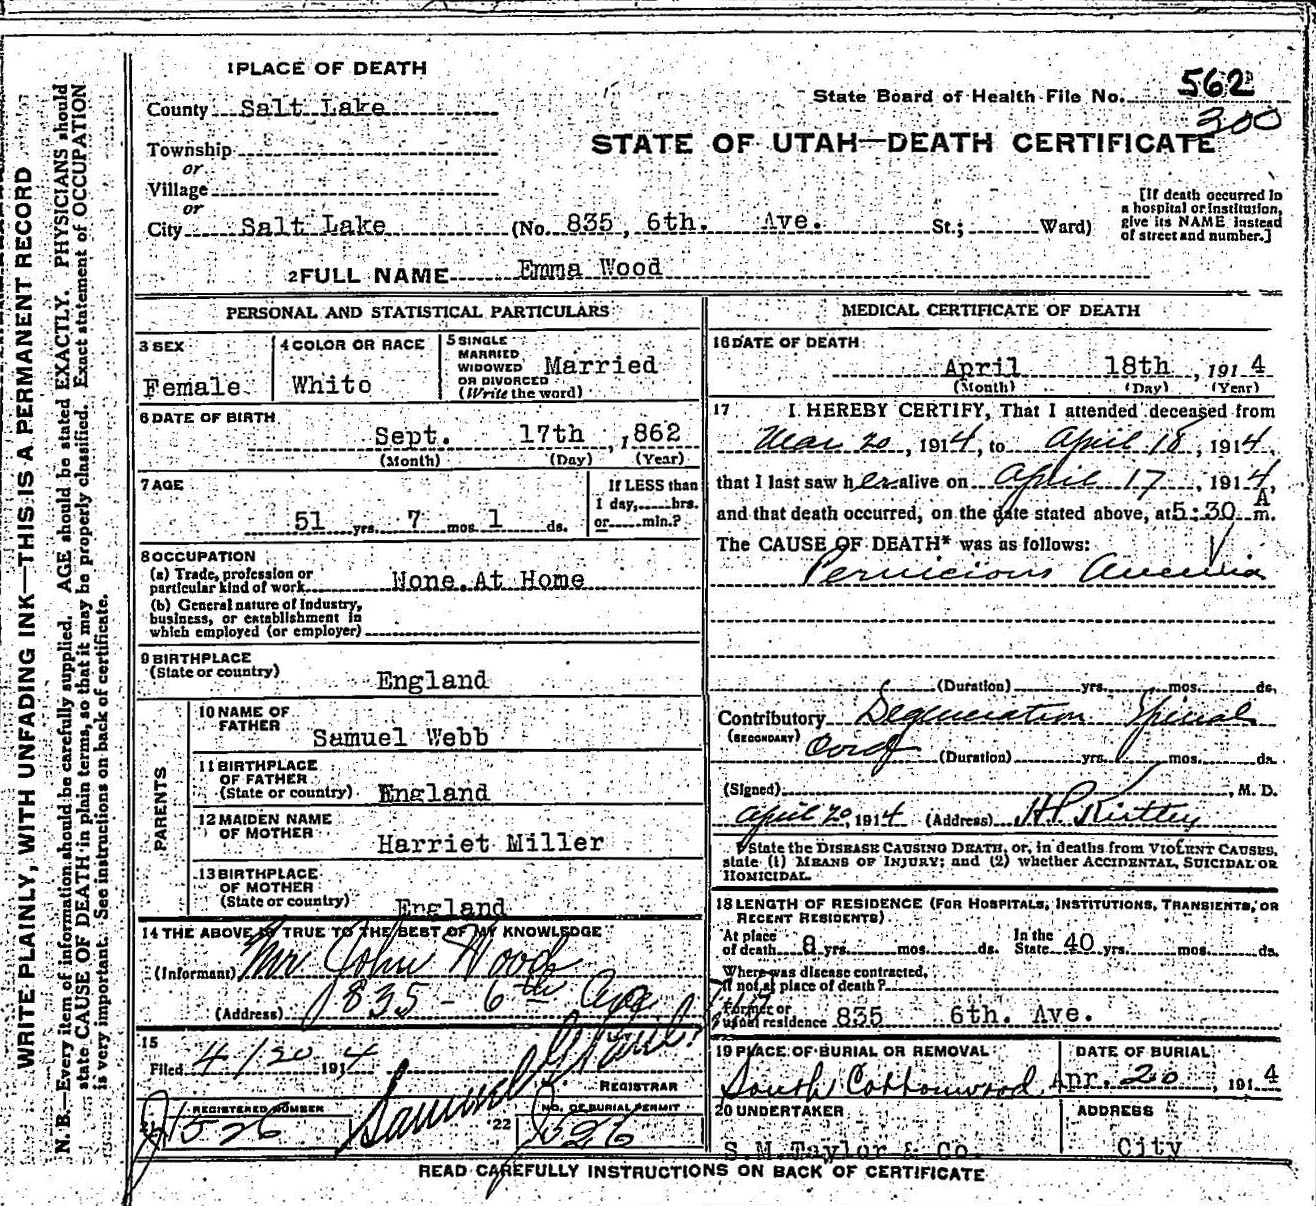 1 PLACE OF DEATH
County Salt Lake
State Board of Health File No. 562
300
STATE OF UTAH—DEATH CERTIFICATE
Township
or
Village
or
City Salt Lake (No. 835, 6th. Ave. St.; Ward)
[If death occurred in a hospital or institution, give its NAME instead of street and number.]
2 FULL NAME Emma Wood
PERSONAL AND STATISTICAL PARTICULARS
3 SEX
Female
4 COLOR OR RACE
White
5 SINGLE
MARRIED
WIDOWED
OR DIVORCED
(Write the word)
Married
6 DATE OF BIRTH
Sept. 17th, 1862
(Month) (Day) (Year)
7 AGE
51 yrs. 7 mos. 1 ds.
If LESS than
1 day, hrs.
or min.?
8 OCCUPATION
(a) Trade, profession or
particular kind of work None. At Home
(b) General nature of Industry,
business, or establishment in
which employed (or employer)
9 BIRTHPLACE
(State or country)
England
PARENTS
10 NAME OF
FATHER
Samuel Webb
11 BIRTHPLACE
OF FATHER
(State or country) England
12 MAIDEN NAME
OF MOTHER
Harriet Miller
13 BIRTHPLACE
OF MOTHER
(State or country) England
14 THE ABOVE IS TRUE TO THE BEST OF MY KNOWLEDGE
(Informant) Mr John Wood
(Address) 835 - 6th Ave
15
Filed 4/20 1914
Samuel G. Paul
REGISTRAR
21 REGISTERED NUMBER
J 526
22 NO. OF BURIAL PERMIT
J 526
MEDICAL CERTIFICATE OF DEATH
16 DATE OF DEATH
April 18th, 1914
(Month) (Day) (Year)
17 I HEREBY CERTIFY, That I attended deceased from
Mar 20, 1914, to April 18, 1914,
that I last saw her alive on April 17, 1914,
and that death occurred, on the date stated above, at 5:30 A m.
The CAUSE OF DEATH* was as follows:
Pernicious Anemia
(Duration) yrs. mos. ds.
Contributory Degeneration Spinal
(SECONDARY) Cord (Duration) yrs. mos. ds.
(Signed) , M. D.
April 20, 1914 (Address) H P Kirtley
*State the DISEASE CAUSING DEATH, or, in deaths from VIOLENT CAUSES,
state (1) MEANS OF INJURY; and (2) whether ACCIDENTAL, SUICIDAL OR
HOMICIDAL.
18 LENGTH OF RESIDENCE (FOR HOSPITALS, INSTITUTIONS, TRANSIENTS, OR
RECENT RESIDENTS)
At place
of death 8 yrs. mos. ds. In the
State 40 yrs. mos. ds.
Where was disease contracted,
if not at place of death?
Former or
usual residence 835 6th. Ave.
19 PLACE OF BURIAL OR REMOVAL
South Cottonwood
DATE OF BURIAL
Apr. 20, 1914
20 UNDERTAKER
S.M. Taylor & Co.
ADDRESS
City
READ CAREFULLY INSTRUCTIONS ON BACK OF CERTIFICATE
WRITE PLAINLY, WITH UNFADING INK—THIS IS A PERMANENT RECORD
N. B.—Every item of information should be carefully supplied. AGE should be stated EXACTLY. PHYSICIANS should
state CAUSE OF DEATH in plain terms, so that it may be properly classified. Exact statement of OCCUPATION
is very important. See instructions on back of certificate.